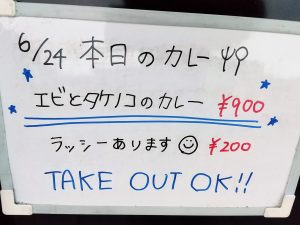 6/24 本日のカレー
エビとタケノコのカレー ¥900
ラッシーあります ¥200
TAKE OUT OK!!